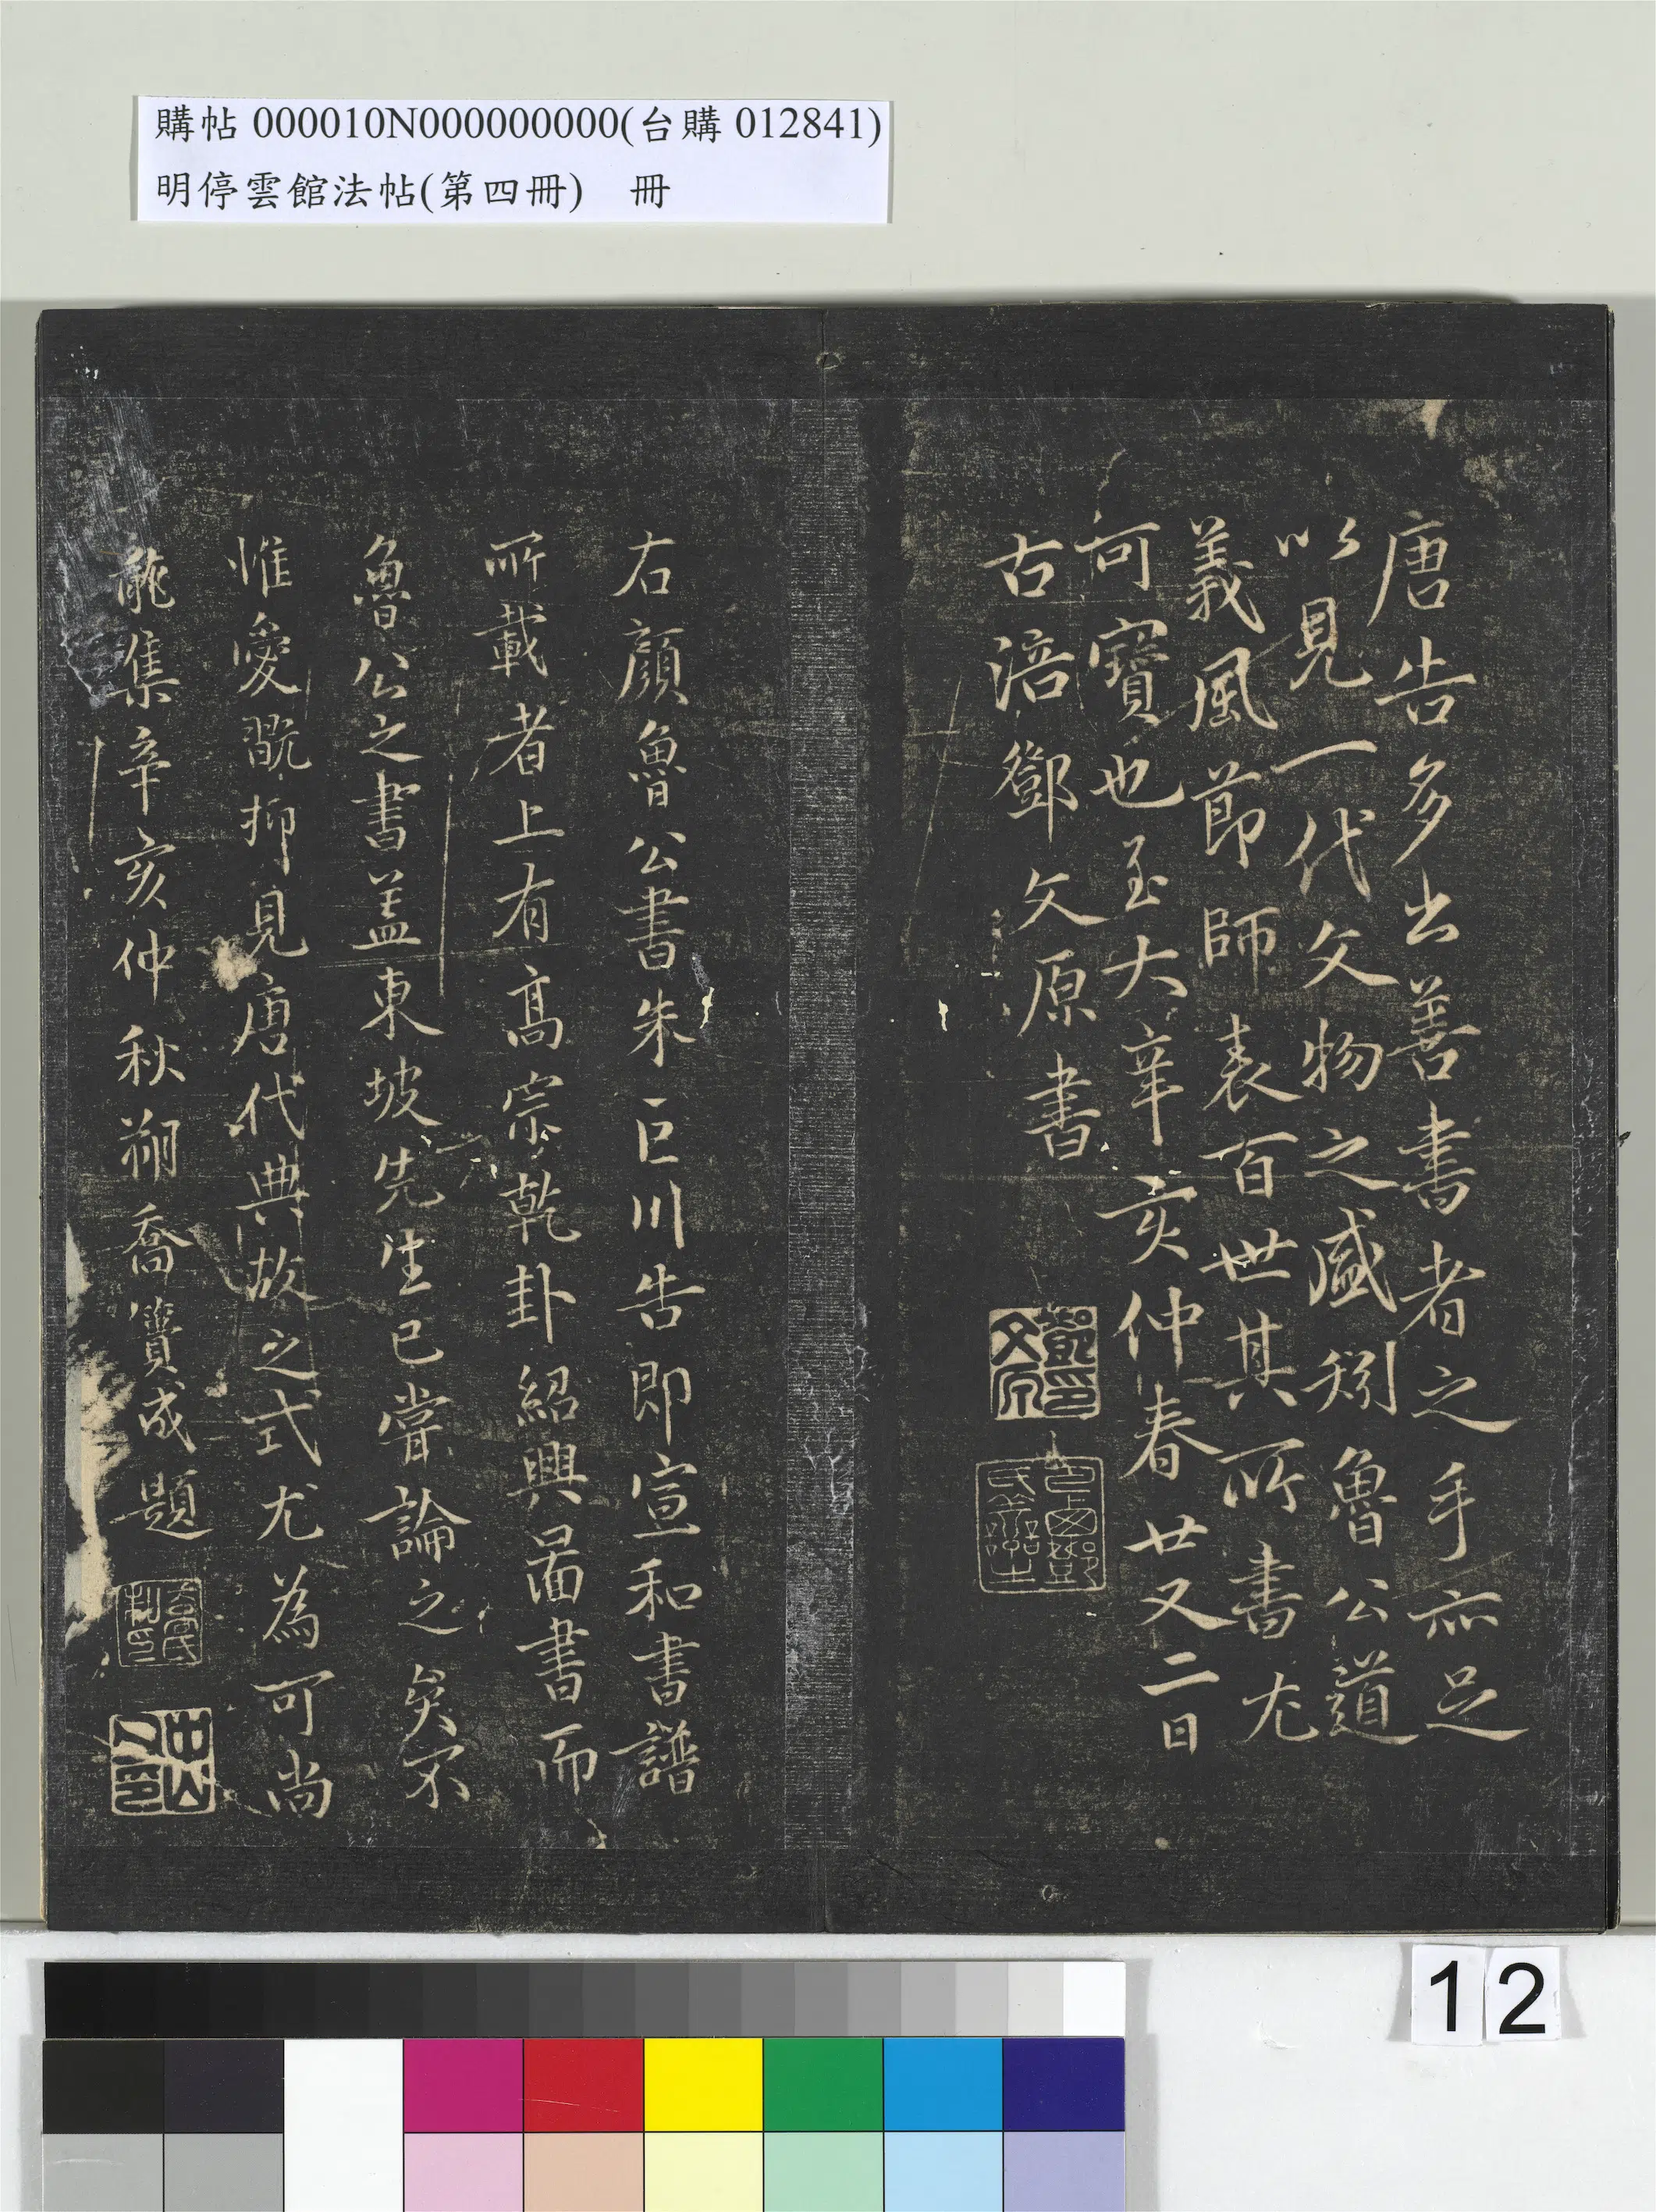 購帖 000010N000000000(台購 012841)
明停雲館法帖(第四冊)　冊
唐告多出善書者之手亦足
以見一代文物之盛矧魯公道
義風節師表百世其所書尤
可寶也至大辛亥仲春廿又二日
古涪鄧文原書
鄧文原印
右顏魯公書朱巨川告即宣和書譜
所載者上有高宗乾卦紹興圖書而
魯公之書蓋東坡先生已嘗論之矣不
惟愛翫抑見唐代典故之式尤為可尚
龍集辛亥仲秋朔喬簣成題
喬氏
仲山
12